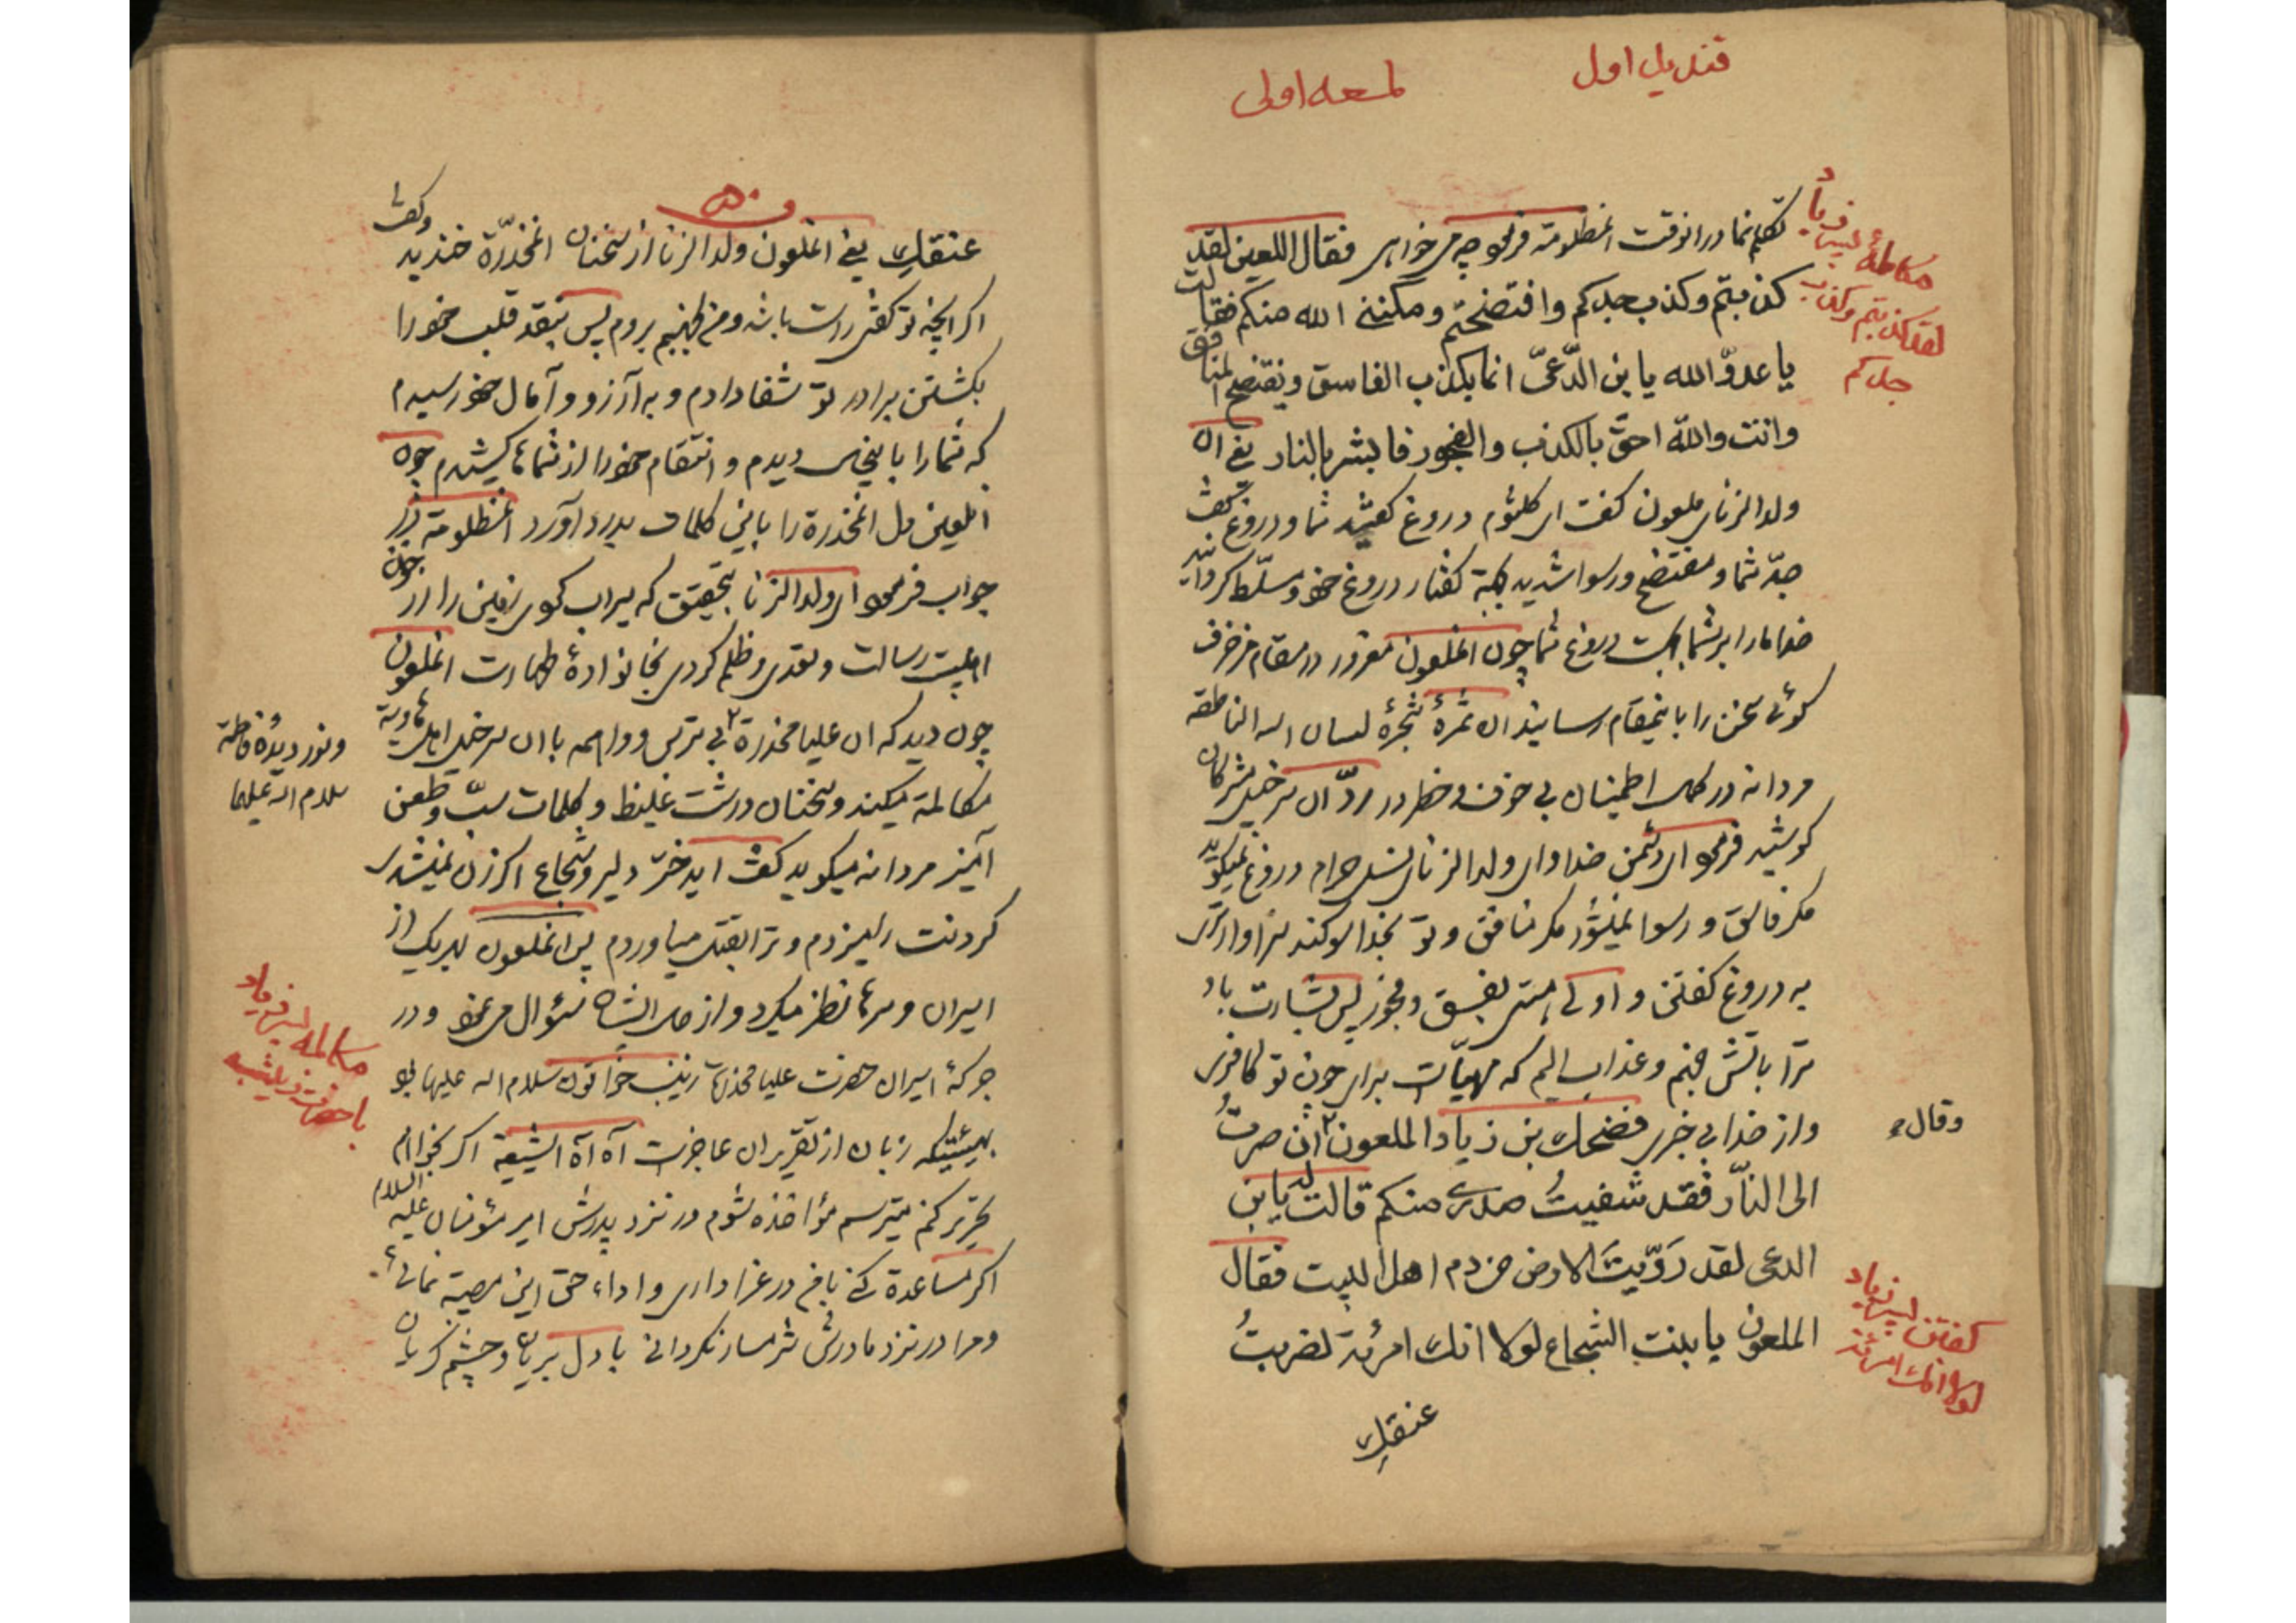 قندیل اول
لمعه اولی
مکالمهٔ پسر زیاد
لقد کذبتم وکذب
جدکم
تکلم نما درانوقت انمظلومة فرمود چه میخواهی فقال اللعین لقد
کذبتم وکذب جدکم وافتضحتم ومکننی الله منکم فقالت
یا عدوّ الله یابن الدّعیّ انما یکذب الفاسق ویفتضح المنافق
وانت والله احقّ بالکذب والفجور فابشر بالنار یعنی ان
ولدالزنای ملعون کفت ای کلثوم دروغ کفتید شما ودروغ کفت
جدّ شما ومفتضح ورسوا شدید بجهة کفتار دروغ خود ومسلّط کردانید
خدا مارا برشما بجهت دروغ شما چون انملعون مغرور در مقام مزخرف
کوئی سخن را باینمقام رسانید ان ثمرهٔ شجرهٔ لسان الله الناطقه
مردانه در کمال اطمینان بی خوف وخطر در ردّ آن سرخیل مشرکان
کوشید فرمود ای دشمن خدا وای ولدالزنای نسل حرام دروغ نمیکوید
مکر فاسق ورسوا نمیشود مکر منافق وتو بخدا سوکند سزاوارتری
به دروغ کفتن واولی هستی بفسق وفجور پس بشارت باد
ترا باتش جهنم وعذاب الیم که مهیّاست برای چون تو کافری
واز خدا بی خبری فضحک بن زیاد الملعون وقال ان صرتُ
الی النّار فقد شفیتُ صدری منکم قالت له یابن
الدعی لقد رَوّیتَ الارض من دم اهل البیت فقال
الملعون یا بنت الشجاع لولا انک امرئة لضربتُ
کفتن پسر زیاد
لولا انک امرئة
عنقک
عنقکِ یعنی انملعون ولدالزنا از سخنان انمخدّرة خندید وکفت
اکر انچه تو کفتی راست باشد ومن بجهنم بروم پس بتحقیق قلب خود را
بکشتن برادر تو شفا دادم وبه آرزو وآمال خود رسیدم
که شما را باینحال دیدم وانتقام خود را از شماها کشیدم چون
انلعین دل انمخدرة را باین کلمات بدرد آورد انمظلومة در
جواب فرمود ای ولدالزنا بتحقیق که سیراب کردی زمین را از خون
اهلبیت رسالت وتعدی وظلم کردی بخانوادهٔ طهارت انملعون
چون دید که ان علیا مخدرة ونور دیدهٔ فاطمه سلام الله علیها بی ترس وواهمه باان سرخیل اهل هاویة
مکالمة میکند وسخنان درشت غلیظ وکلمات سبّ وطعن
آمیز مردانه میکوید کفت ایدختر دلیر وشجاع اکر زن نمیشدی
کردنت را میزدم وترا بقتل میاوردم پس انملعون بهریک از
اسیران وسرها نظر میکرد واز حال ایشان سئوال می نمود ودر
جرکهٔ اسیران حضرت علیا مخدرة زینب خواتون سلام الله علیها بود
بهیئتیکه زبان از تقریر ان عاجزست آه آه ایشیعة اکر بخواهم
تحریر کنم میترسم مؤاخذه شوم در نزد پدرش امیر مؤمنان علیه السلام
اکر مساعدة کنی بامن در عزاداری واداء حق این مصیبة نمائی
ومرا در نزد مادرش شرمسار نکردانی بادل بریان وچشم کریان
مکالمه پسر زیاد
با حضرت زینب